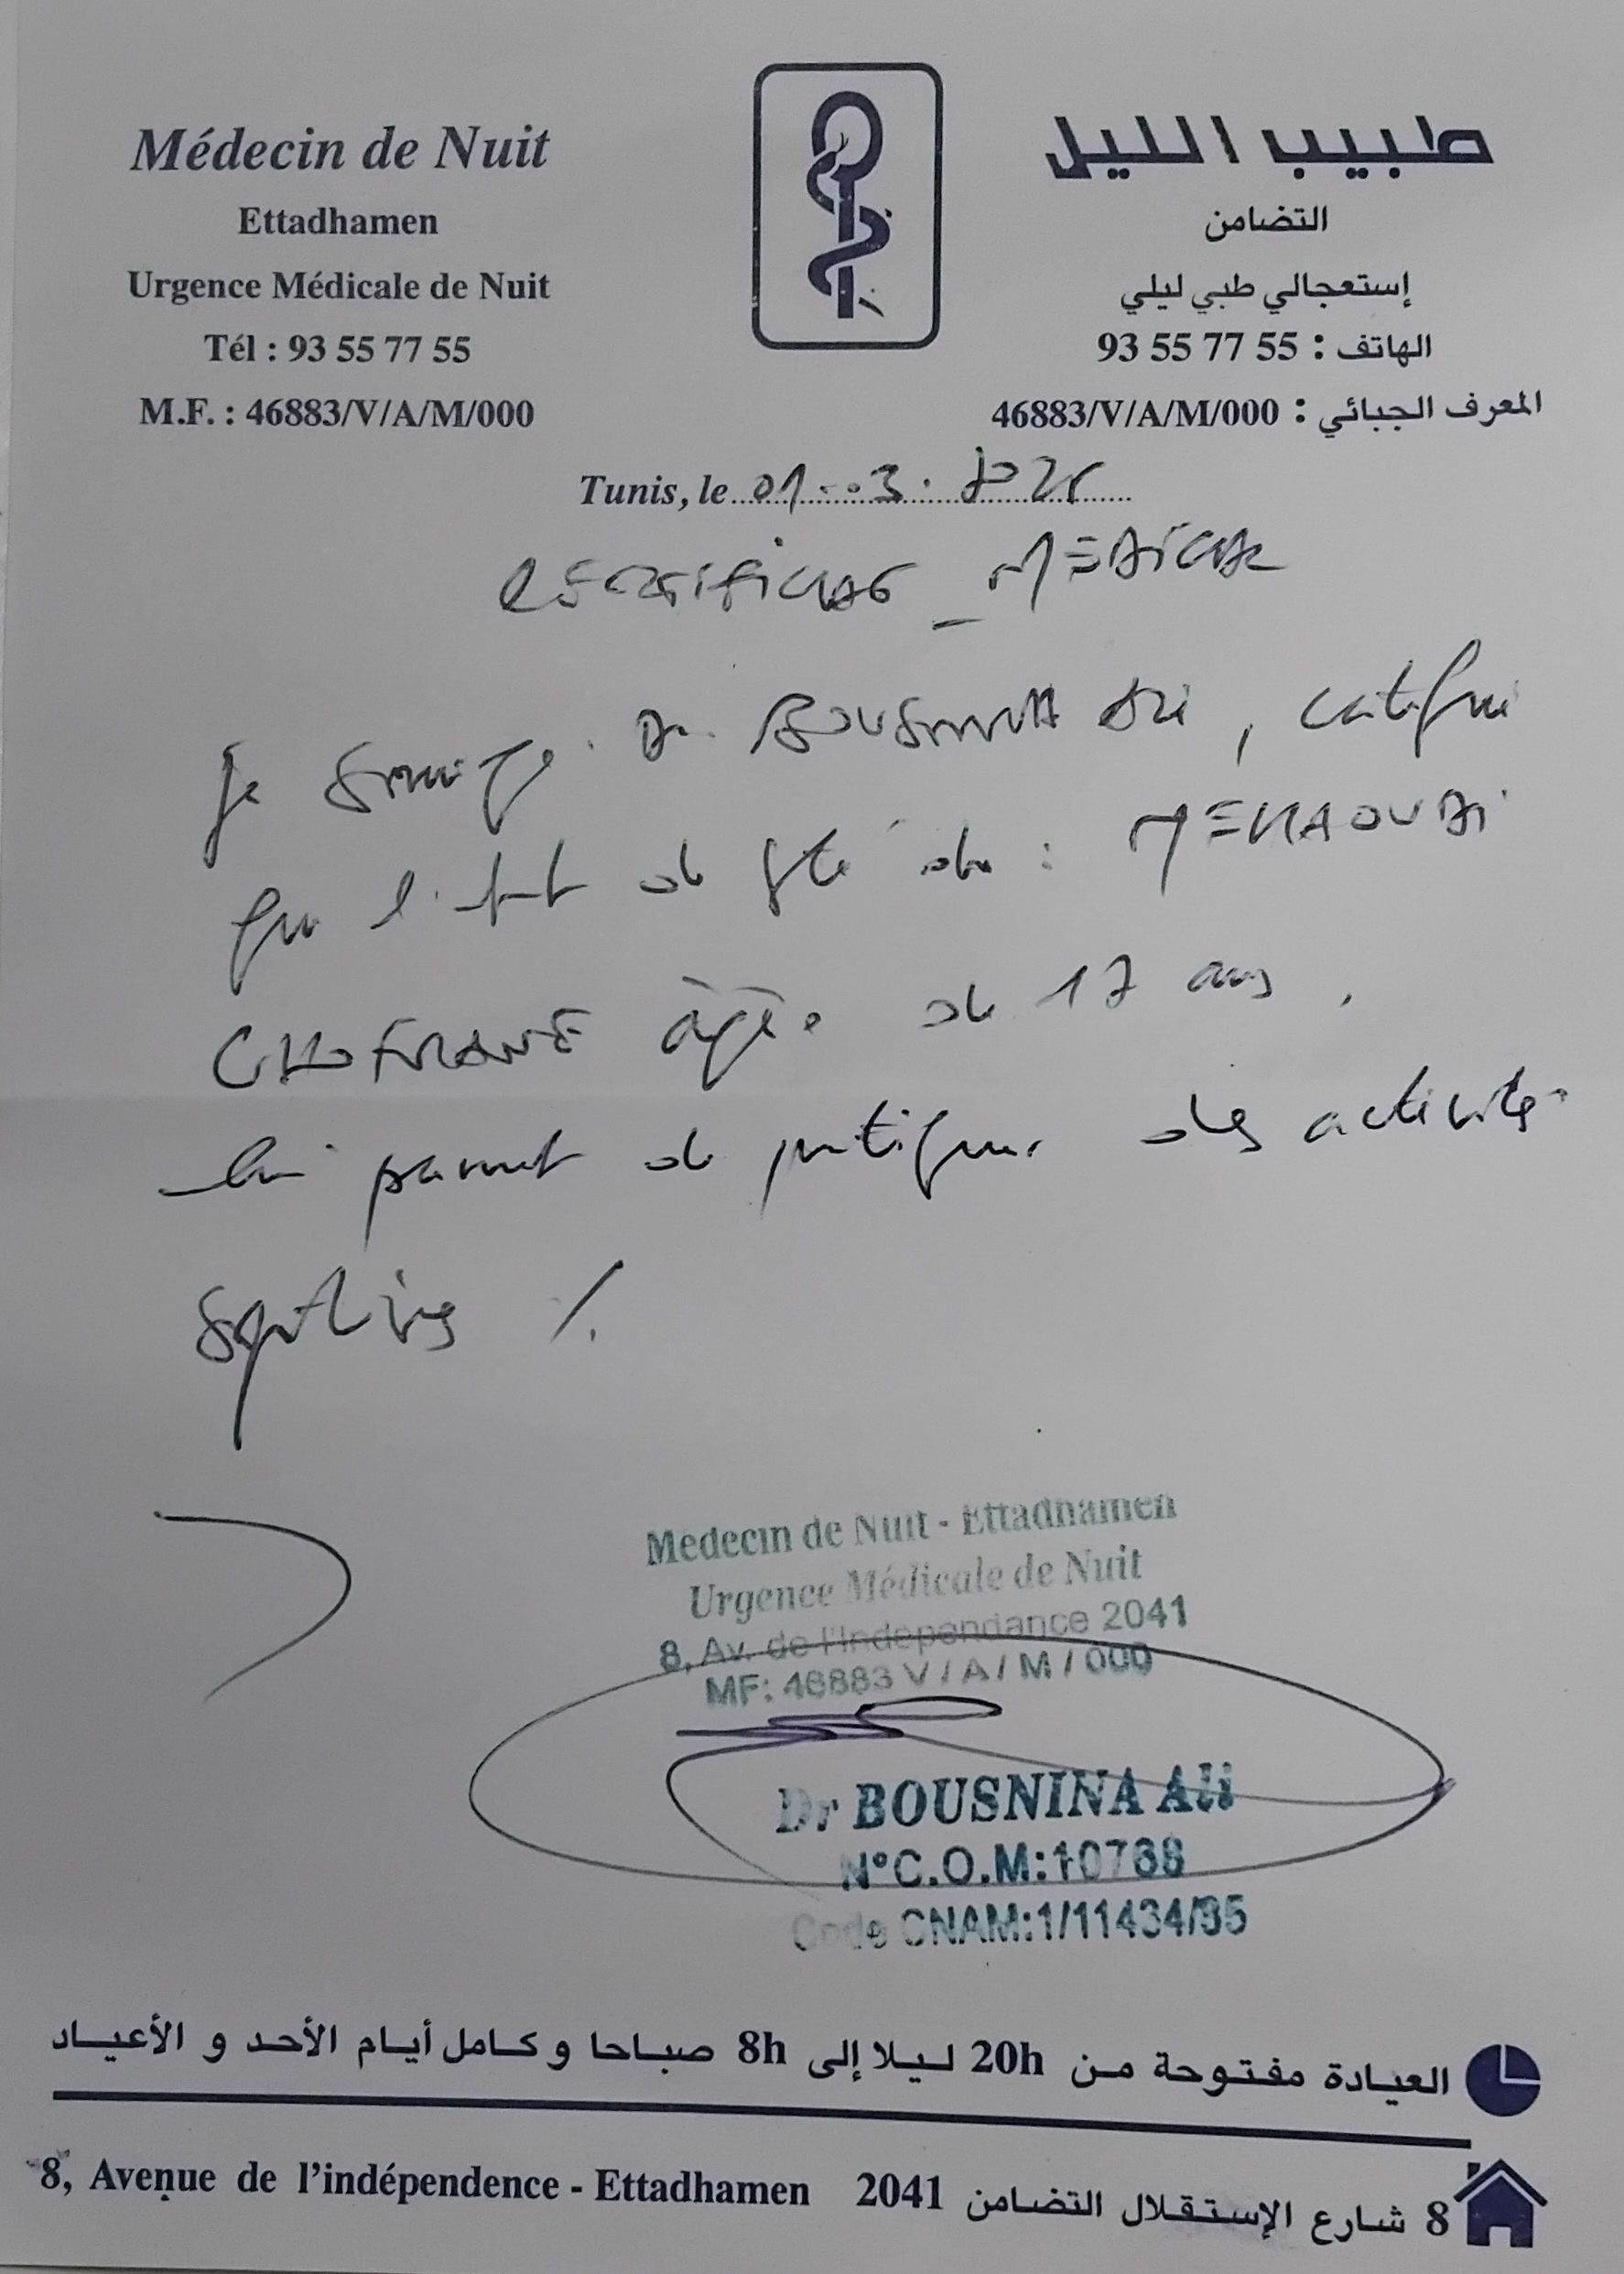 Médecin de Nuit
Ettadhamen
Urgence Médicale de Nuit
Tél : 93 55 77 55
M.F. : 46883/V/A/M/000
طبيب الليل
التضامن
إستعجالي طبي ليلي
الهاتف : 93 55 77 55
المعرف الجبائي : 46883/V/A/M/000
Tunis, le 01.03.202
CERTIFICAT MEDICAL
Je Dr BOUSNINA Ali, certifie
que l'état de de :
âgée de 17 ans,
lui permet de pratiquer des activités
sportives /.
Médecin de Nuit - Ettadhamen
Urgence Médicale de Nuit
8, Av. de l'Indépendance 2041
MF: 46883 V / A / M / 000
Dr BOUSNINA Ali
N°C.O.M:10768
Code CNAM:1/11434/95
العيادة مفتوحة من 20h ليلا إلى 8h صباحا و كامل أيام الأحد و الأعياد
8, Avenue de l'indépendence - Ettadhamen 2041 8 شارع الإستقلال التضامن